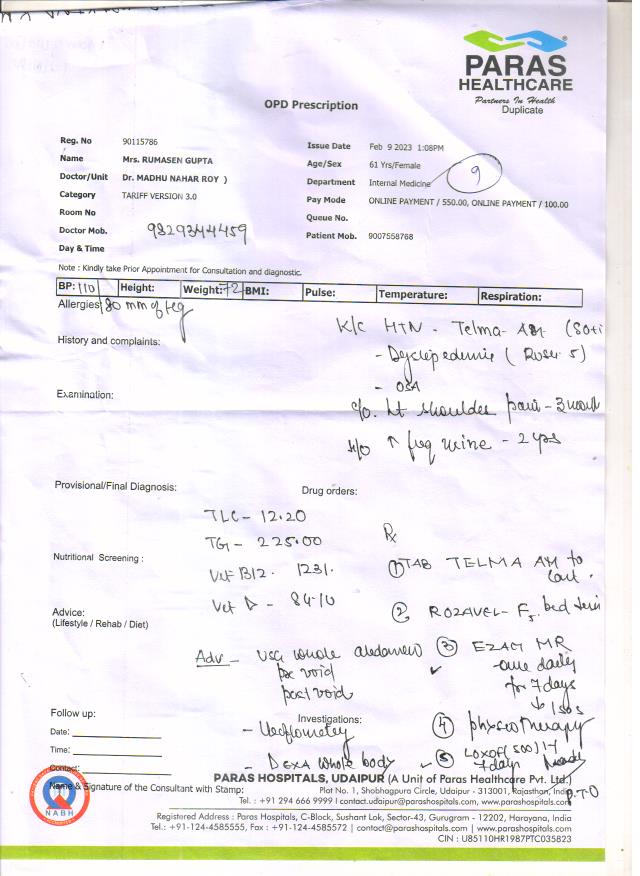 PARAS
HEALTHCARE
Partners In Health
Duplicate
OPD Prescription
Reg. No 90115786
Name Mrs. RUMASEN GUPTA
Doctor/Unit Dr. MADHU NAHAR ROY )
Category TARIFF VERSION 3.0
Room No
Doctor Mob. 9829344459
Day & Time
Issue Date Feb 9 2023 1:08PM
Age/Sex 61 Yrs/Female
Department Internal Medicine 9
Pay Mode ONLINE PAYMENT / 550.00, ONLINE PAYMENT / 100.00
Queue No.
Patient Mob. 9007558768
Note : Kindly take Prior Appointment for Consultation and diagnostic.
BP: 110 Height: Weight: 72 BMI: Pulse: Temperature: Respiration:
Allergies /80 mm of Hg
K/c HTN - Telma-AM (80+
History and complaints:
- Dyslepedemic (
- OSA
Examination:
c/o. Lt shoulder pain - 3 month
H/o ↑ freq urine - 2 yrs
Provisional/Final Diagnosis:
Drug orders:
TLC - 12.20
TG - 225.00
Vit B12. 1231.
Vit D - 84.10
Nutritional Screening :
Advice:
(Lifestyle / Rehab / Diet)
Rx
① TAB TELMA AM to
② ROZAVEL-F5 bed
③ EZACT MR
- one daily
for 7 days
↓ SOS
④ physeotherapy
⑤ LOXOF (500) 1-1
7 days
P.T.O
Adv - USG whole abdomen
pre void
post void
Investigations:
- Uroflometry
- DEXA whole body
Follow up:
Date:
Time:
Contact:
Name & Signature of the Consultant with Stamp:
NABH
PARAS HOSPITALS, UDAIPUR (A Unit of Paras Healthcare Pvt. Ltd.)
Plot No. 1, Shobhagpura Circle, Udaipur - 313001, Rajasthan, India
Tel. : +91 294 666 9999 I contact.udaipur@parashospitals.com, www.parashospitals.com
Registered Address : Paras Hospitals, C-Block, Sushant Lok, Sector-43, Gurugram - 12202, Harayana, India
Tel.: +91-124-4585555, Fax : +91-124-4585572 | contact@parashospitals.com | www.parashospitals.com
CIN : U85110HR1987PTC035823